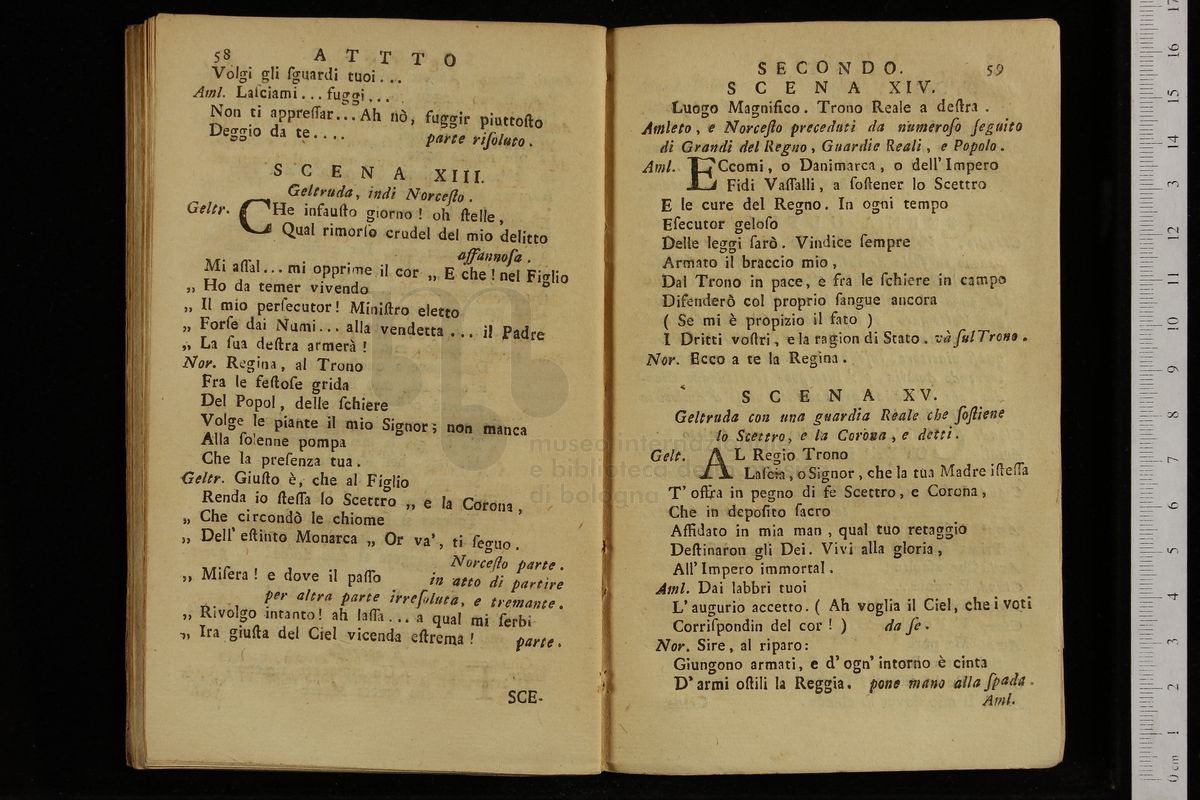 58 A T T T O
Volgi gli ſguardi tuoi...
Aml. Laſciami... fuggi...
Non ti appreſſar... Ah nò, fuggir piuttoſto
Deggio da te.... parte riſoluto.
S C E N A XIII.
Geltruda, indi Norceſto.
Geltr. CHe infauſto giorno! oh ſtelle,
Qual rimorſo crudel del mio delitto
affannoſa.
Mi aſſal... mi opprime il cor „ E che! nel Figlio
„ Ho da temer vivendo
„ Il mio perſecutor! Miniſtro eletto
„ Forſe dai Numi... alla vendetta ... il Padre
„ La ſua deſtra armerà!
Nor. Regina, al Trono
Fra le feſtoſe grida
Del Popol, delle ſchiere
Volge le piante il mio Signor; non manca
Alla ſolenne pompa
Che la preſenza tua.
Geltr. Giuſto è, che al Figlio
Renda io ſteſſa lo Scettro „ e la Corona,
„ Che circondò le chiome
„ Dell' eſtinto Monarca „ Or va', ti ſeguo.
Norceſto parte.
„ Miſera! e dove il paſſo in atto di partire
per altra parte irreſoluta, e tremante.
„ Rivolgo intanto! ah laſſa... a qual mi ſerbi
„ Ira giuſta del Ciel vicenda eſtrema! parte.
SCE-
SECONDO. 59
S C E N A XIV.
Luogo Magnifico. Trono Reale a deſtra.
Amleto, e Norceſto preceduti da numeroſo ſeguito
di Grandi del Regno, Guardie Reali, e Popolo.
Aml. ECcomi, o Danimarca, o dell' Impero
Fidi Vaſſalli, a ſoſtener lo Scettro
E le cure del Regno. In ogni tempo
Eſecutor geloſo
Delle leggi ſarò. Vindice ſempre
Armato il braccio mio,
Dal Trono in pace, e fra le ſchiere in campo
Difenderò col proprio ſangue ancora
( Se mi è propizio il fato )
I Dritti voſtri, e la ragion di Stato. và ſul Trono.
Nor. Ecco a te la Regina.
S C E N A XV.
Geltruda con una guardia Reale che ſoſtiene
lo Scettro, e la Corona, e detti.
Gelt. AL Regio Trono
Laſcia, o Signor, che la tua Madre iſteſſa
T' offra in pegno di fe Scettro, e Corona,
Che in depoſito ſacro
Affidato in mia man, qual tuo retaggio
Deſtinaron gli Dei. Vivi alla gloria,
All' Impero immortal.
Aml. Dai labbri tuoi
L' augurio accetto. ( Ah voglia il Ciel, che i voti
Corriſpondin del cor! ) da ſe.
Nor. Sire, al riparo:
Giungono armati, e d' ogn' intorno è cinta
D' armi oſtili la Reggia. pone mano alla ſpada.
Aml.
museo internazionale
e biblioteca della musica
di bologna
0 cm 1 2 3 4 5 6 7 8 9 10 11 12 13 14 15 16 17